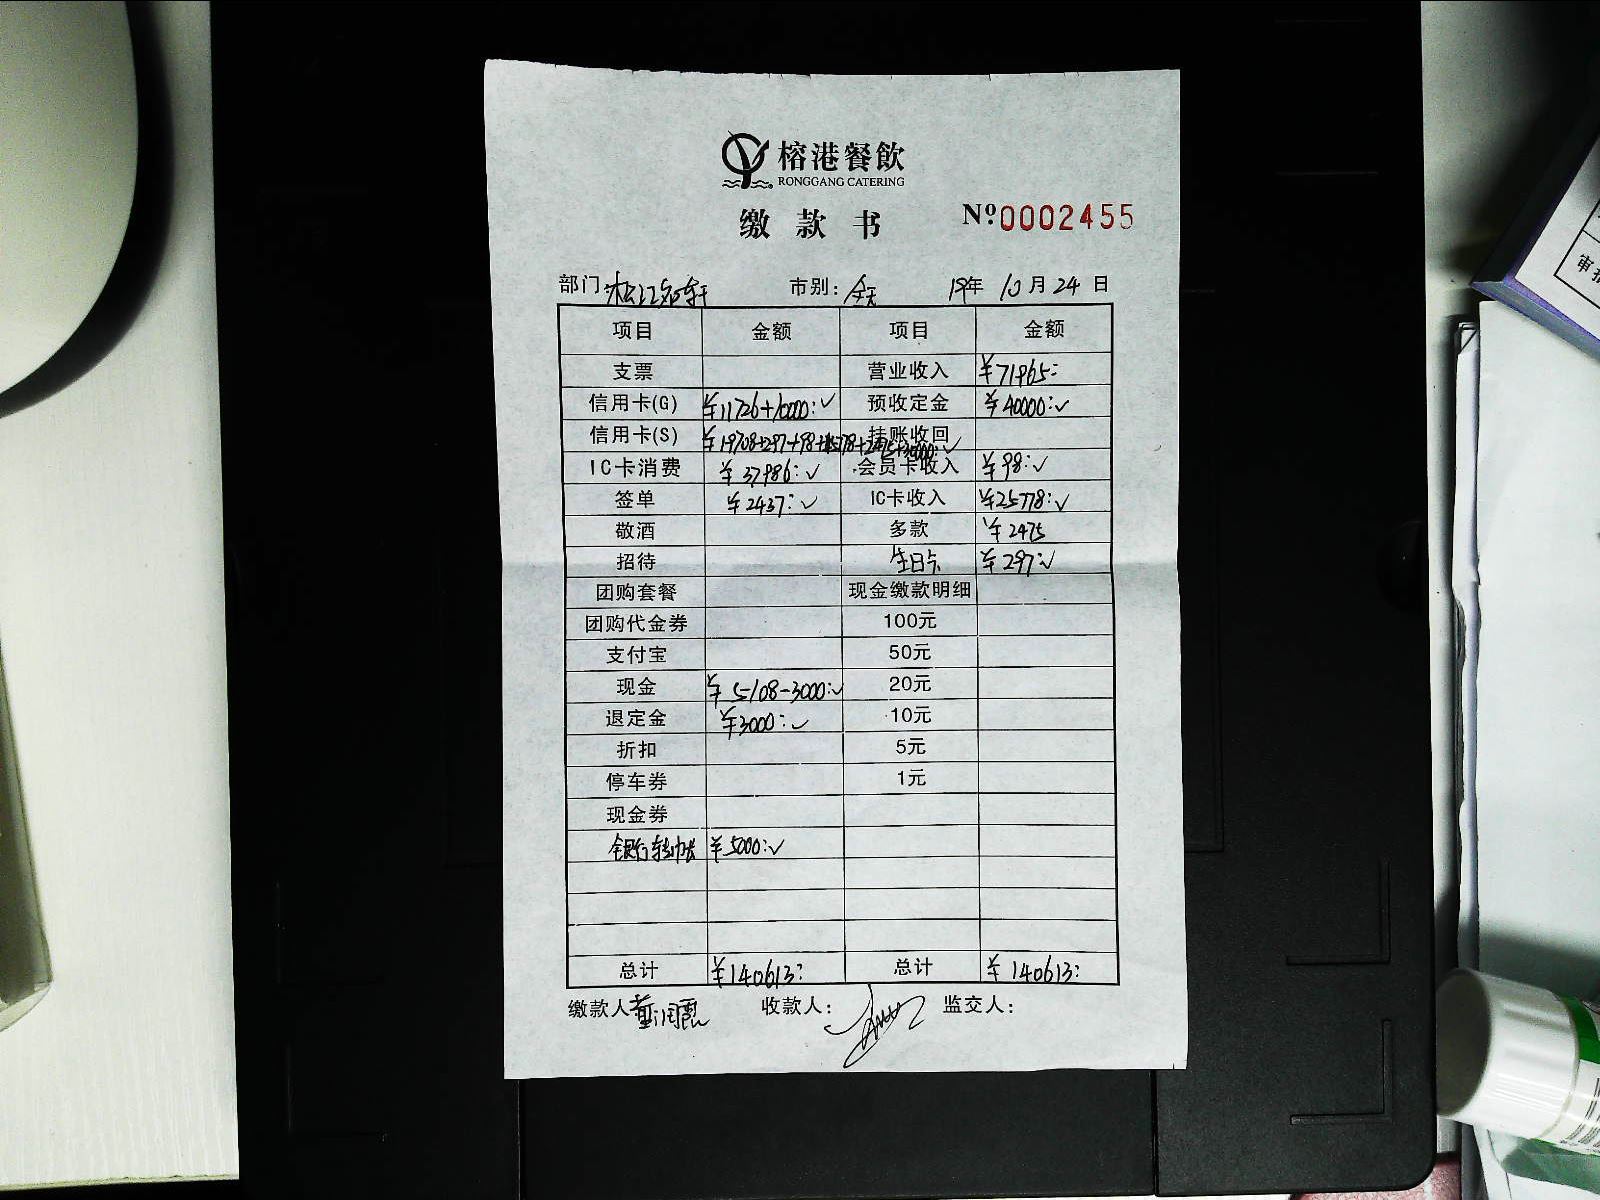 榕港餐飲
RONGGANG CATERING
缴款书 Nº0002455
部门: 松江名轩 市别: 全天 19年 10月 24日
项目 金额 项目 金额
支票 营业收入 ¥71965:
信用卡(G) ¥11726+10000:✓ 预收定金 ¥40000:✓
信用卡(S) ¥19708+297+98+15778+2475+30000:✓ 挂账收回
IC卡消费 ¥37986:✓ 会员卡收入 ¥98:✓
签单 ¥2437:✓ IC卡收入 ¥25778:✓
敬酒 多款 ¥2475
招待 生日卡 ¥297:✓
团购套餐 现金缴款明细
团购代金券 100元
支付宝 50元
现金 ¥5108-3000:✓ 20元
退定金 ¥3000:✓ 10元
折扣 5元
停车券 1元
现金券
银行转帐 ¥5000:✓
总计 ¥140613: 总计 ¥140613:
缴款人 收款人: 监交人:
审批